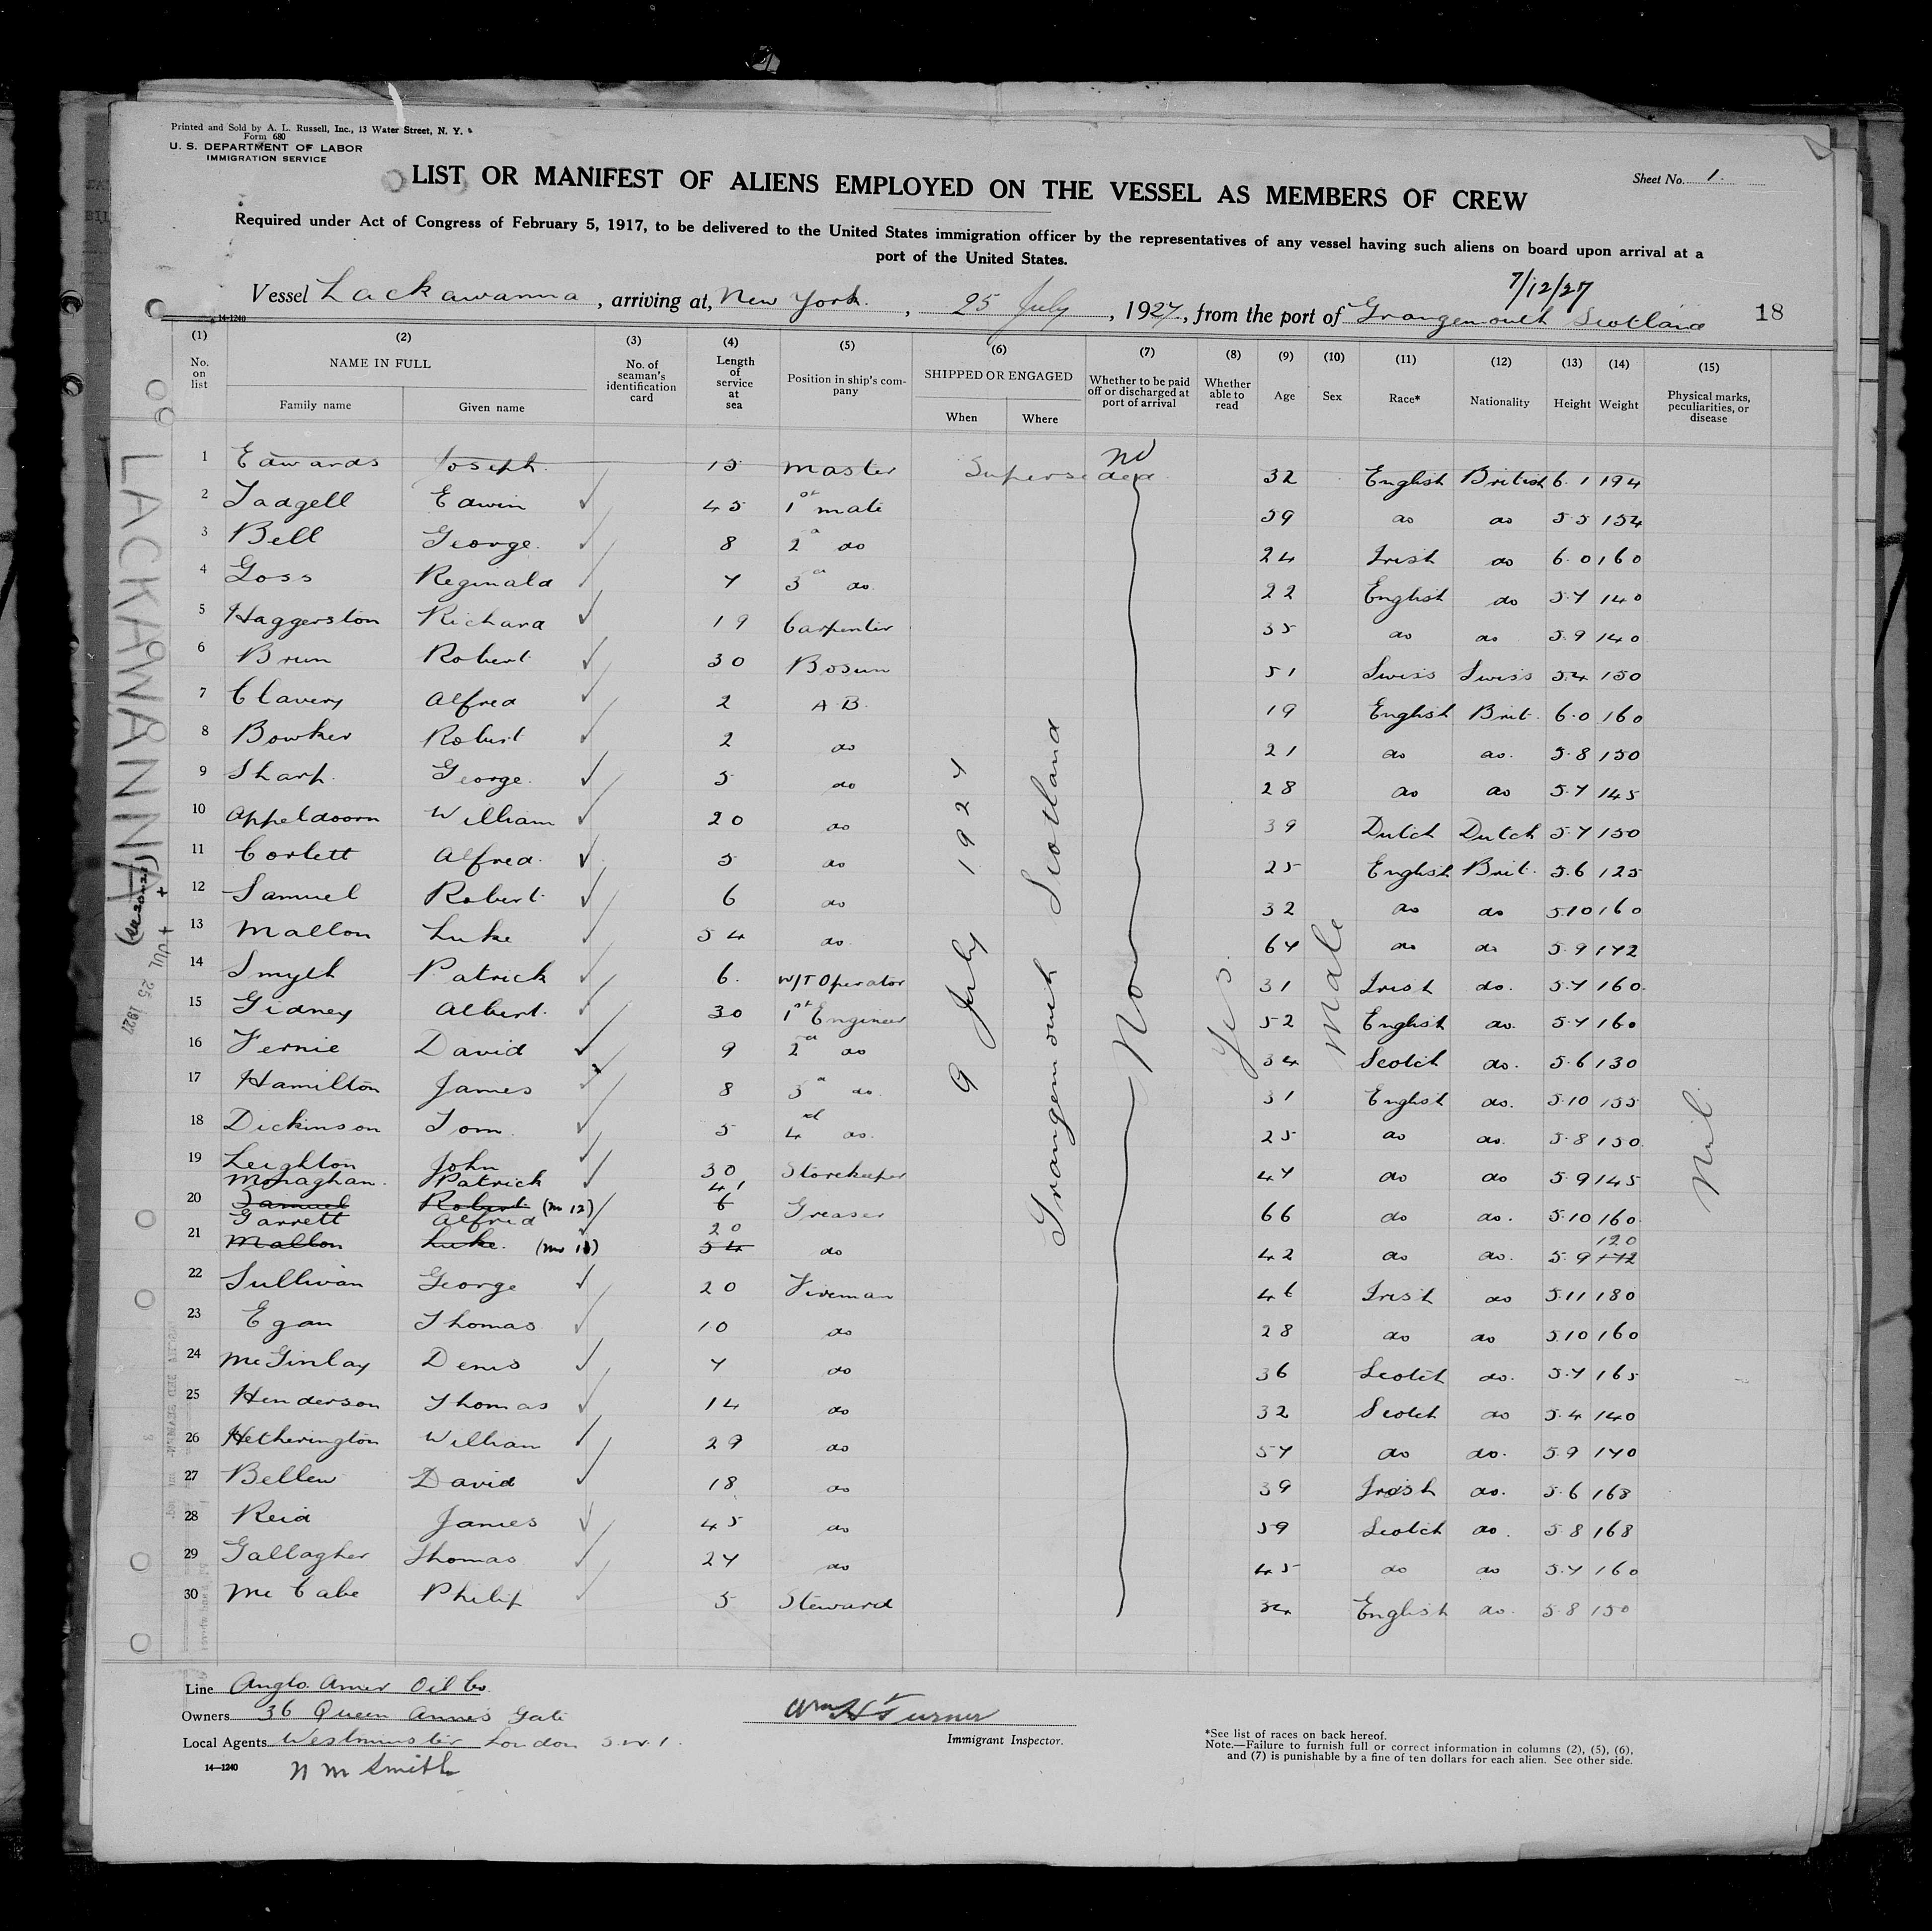 Printed and Sold by A. L. Russell, Inc., 13 Water Street, N. Y.
Form 680
U. S. DEPARTMENT OF LABOR
IMMIGRATION SERVICE
LIST OR MANIFEST OF ALIENS EMPLOYED ON THE VESSEL AS MEMBERS OF CREW
Sheet No. 1.
Required under Act of Congress of February 5, 1917, to be delivered to the United States immigration officer by the representatives of any vessel having such aliens on board upon arrival at a
port of the United States.
7/12/27
Vessel Lackawanna, arriving at, New York., 25 July, 1927, from the port of Grangemouth Scotland 18
14-1240
(1) (2) (3) (4) (5) (6) (7) (8) (9) (10) (11) (12) (13) (14) (15)
No. on list NAME IN FULL No. of seaman's identification card Length of service at sea Position in ship's company SHIPPED OR ENGAGED Whether to be paid off or discharged at port of arrival Whether able to read Age Sex Race* Nationality Height Weight Physical marks, peculiarities, or disease
Family name Given name When Where
1 Edwards Joseph. 15 Master Superseded no 32 English British 6.1 194
2 Tadgell Edwin 45 1st mate 59 do do 5.5 154
3 Bell George. 8 2d do 24 Irish do 6.0 160
4 Goss Reginald 7 3d do 22 English do 5.7 140
5 Haggerston Richard 19 Carpenter 35 do do 5.9 140
6 Brun Robert 30 Bosun 51 Swiss Swiss 5.4 150
7 Clavery Alfred 2 A.B. 19 English Brit. 6.0 160
8 Bowker Robert 2 do 21 do do. 5.8 150
9 Sharp. George. 5 do 28 do do 5.7 145
10 Appeldoorn William 20 do 39 Dutch Dutch 5.7 150
11 Corlett Alfred. 5 do 25 English Brit. 5.6 125
12 Samuel Robert. 6 do 32 do do 5.10 160
13 Mallon Luke 54 do 67 do do 5.9 172
14 Smyth Patrick 6. W/T Operator 31 Irish do. 5.7 160.
15 Gidney Albert. 30 1st Engineer 52 English do. 5.7 160
16 Fernie David 9 2d do 34 Scotch do. 5.6 130
17 Hamilton James 8 3d do. 31 English do. 5.10 155
18 Dickinson Tom 5 4 do. 25 do do. 5.8 150.
19 Leighton John 30 Storekeeper 47 do do 5.9 145
Monaghan. Patrick 41
20 Samuel Robert (no 12) 6 Greaser 66 do do. 5.10 160.
Garrett Alfred 20 120
21 Mallon Luke. 54 do 42 do do. 5.9 172
22 Sullivan George 20 Fireman 46 Irish do 5.11 180
23 Egan Thomas 10 do 28 do do 5.10 160
24 McGinlay Denis 7 do 36 Scotch do. 5.7 165
25 Henderson Thomas 14 do 32 Scotch do 5.4 140
26 Hetherington William 29 do 57 do do. 5.9 170
27 Bellew David 18 do 39 Irish do. 5.6 168
28 Reid James 45 do 59 Scotch do. 5.8 168
29 Gallagher Thomas 27 do 45 do do 5.7 160
30 McCabe Philip 5 Steward English do. 5.8 150
9 July 1927
Grangemouth Scotland
No
Yes.
Male
Nil.
LACKAWANNA
JUL 25 1927
Line Anglo. Amer Oil Co.
Owners 36 Queen Anne's Gate
Local Agents Westminster London S.W.1.
14—1240
N M Smith
Wm H Turner
Immigrant Inspector.
*See list of races on back hereof.
Note.—Failure to furnish full or correct information in columns (2), (5), (6),
and (7) is punishable by a fine of ten dollars for each alien. See other side.